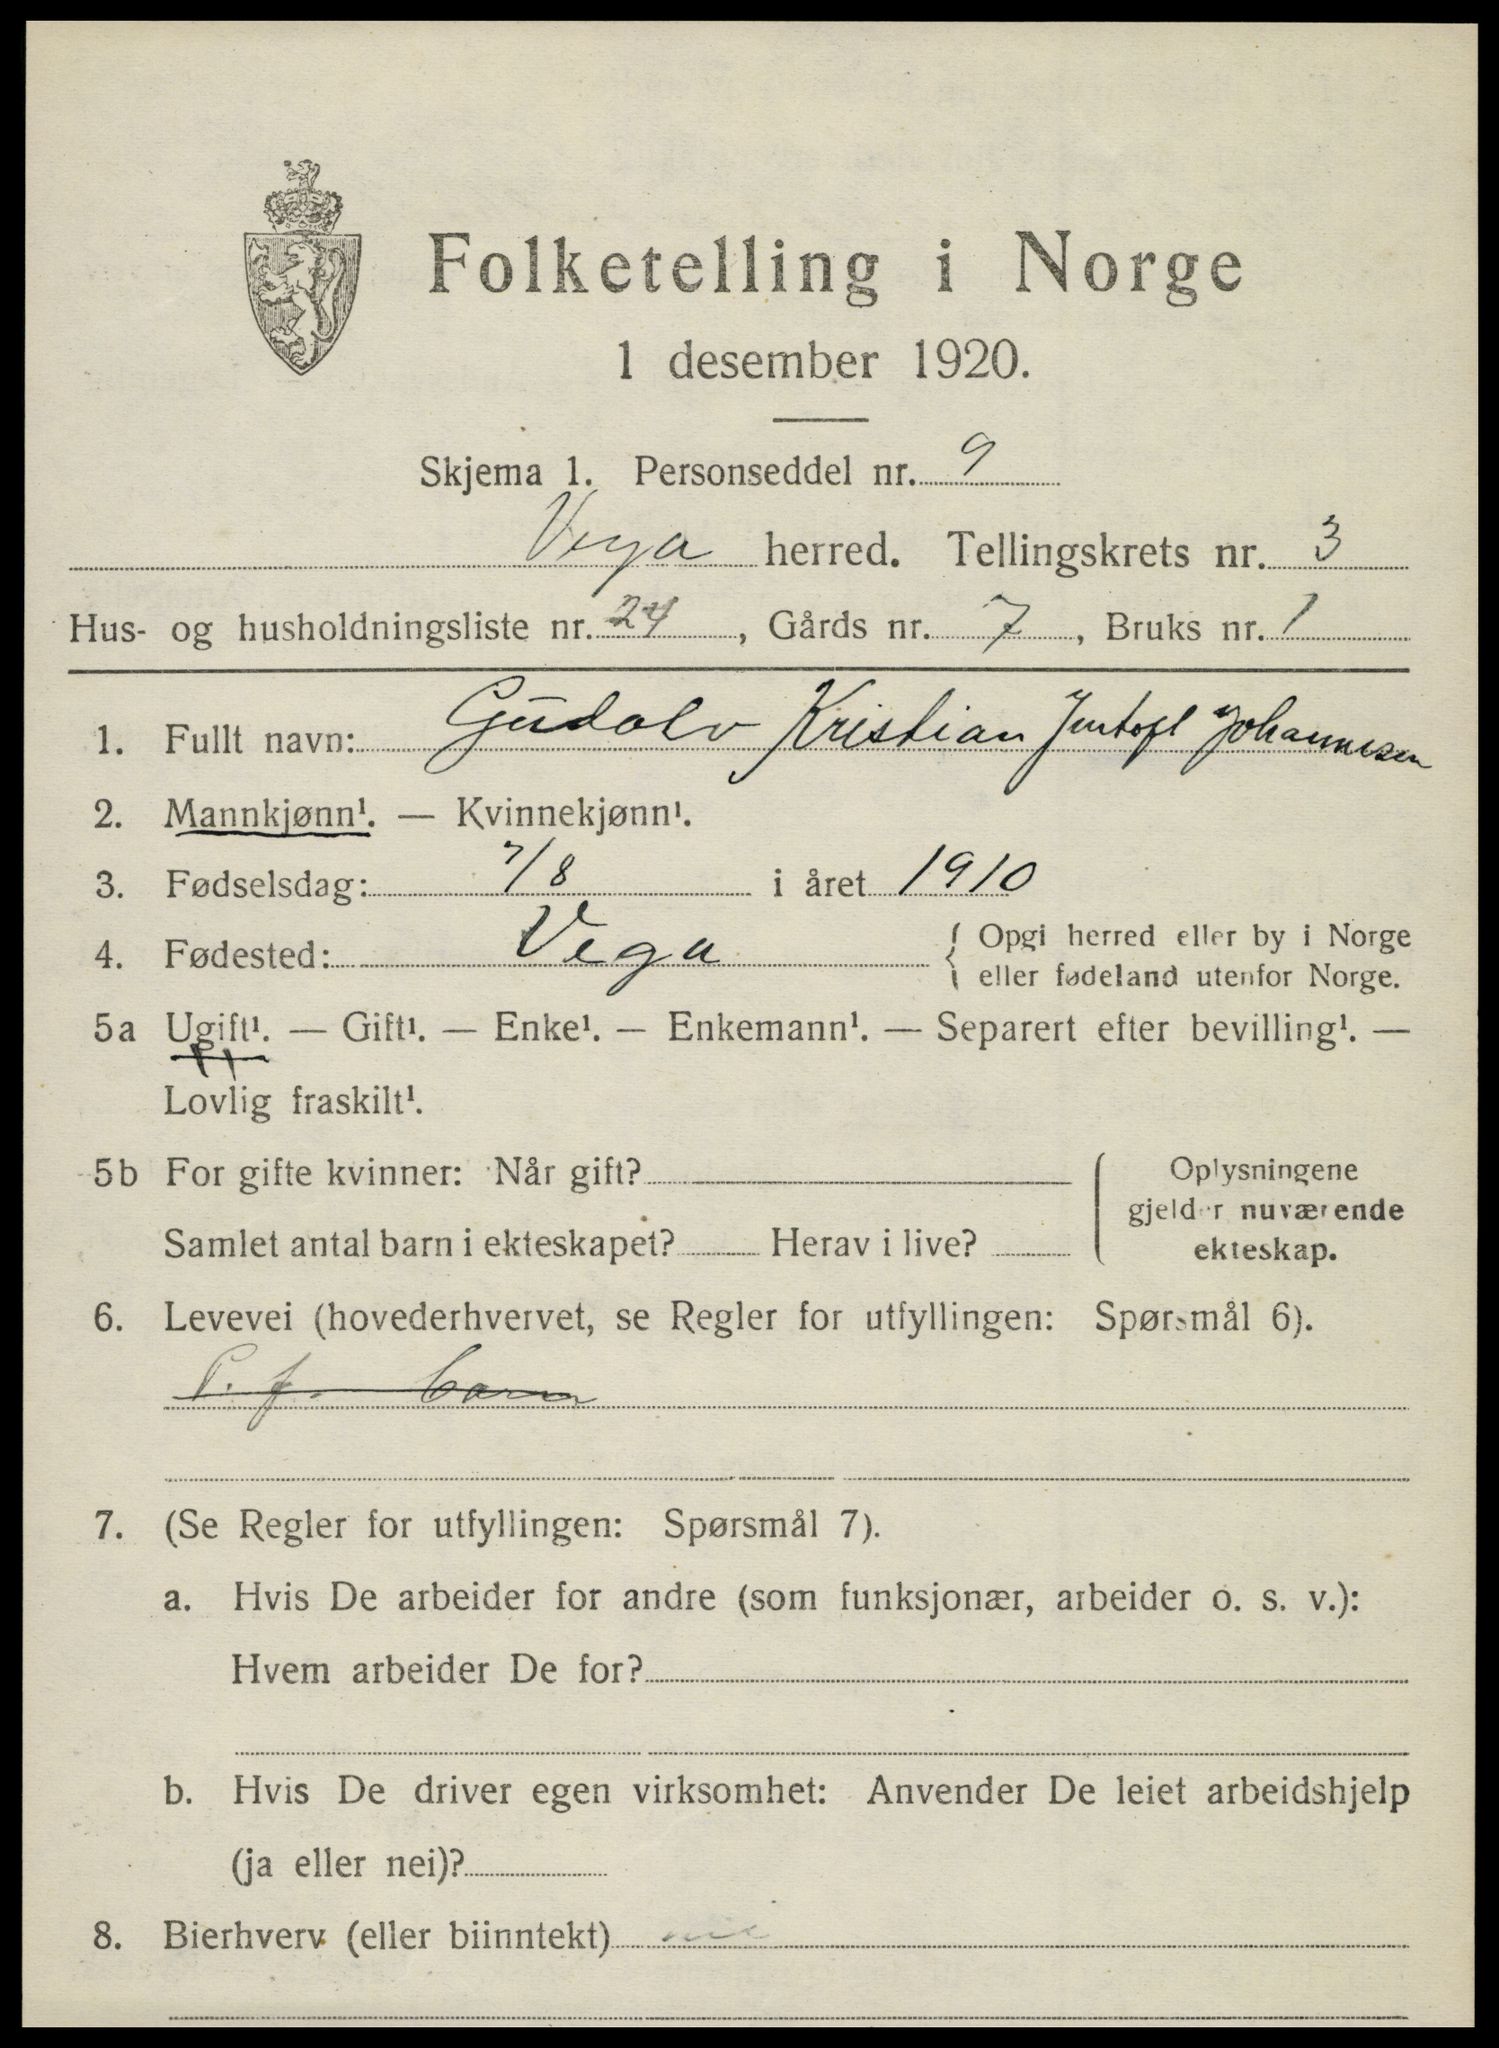 Folketelling i Norge
1 desember 1920.
Skjema 1. Personseddel nr. 9
Vega herred. Tellingskrets nr. 3
Hus- og husholdningsliste nr. 24, Gårds nr. 7, Bruks nr. 1
1. Fullt navn: Gudolv Kristian Johannesen
2. Mannkjønn¹. — Kvinnekjønn¹.
3. Fødselsdag: 7/8 i året 1910
4. Fødested: Vega { Opgi herred eller by i Norge
eller fødeland utenfor Norge.
5a Ugift¹. — Gift¹. — Enke¹. — Enkemann¹. — Separert efter bevilling¹. —
Lovlig fraskilt¹.
5b For gifte kvinner: Når gift?
Samlet antal barn i ekteskapet? Herav i live?
Oplysningene
gjelder nuværende
ekteskap.
6. Levevei (hovederhvervet, se Regler for utfyllingen: Spørsmål 6).
P. f. barn
7. (Se Regler for utfyllingen: Spørsmål 7).
a. Hvis De arbeider for andre (som funksjonær, arbeider o. s. v.):
Hvem arbeider De for?
b. Hvis De driver egen virksomhet: Anvender De leiet arbeidshjelp
(ja eller nei)?
8. Bierhverv (eller biinntekt)